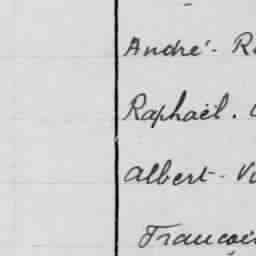 André - R
Raphaël.
Albert - Vi
Françoi